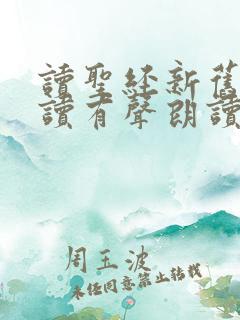 讀聖經新舊
讀有聲朗讀
周玉波
未經同意禁止轉載